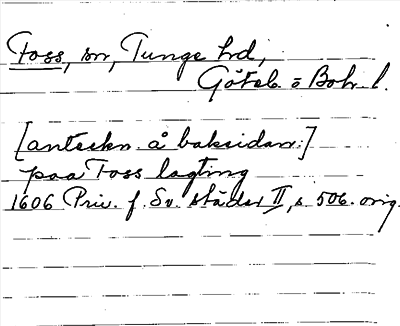 Foss, sn, Tunge hd,
Göteb. o Boh. l.
[anteckn. å baksidan:]
paa Foss lagting
1606 Priv. f. Sv. städer II, s. 506. orig.